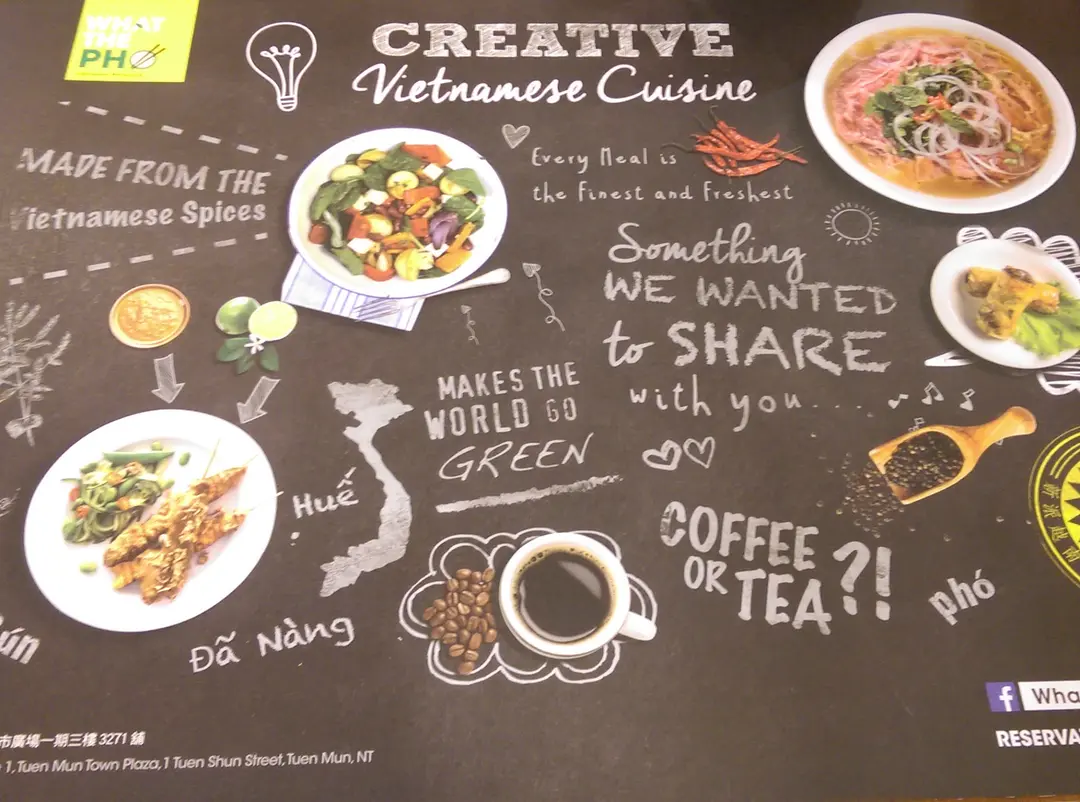 WHAT
THE
PHO
CREATIVE
Vietnamese Cuisine
MADE FROM THE
Vietnamese Spices
Every Meal is
the Finest and Freshest
Something
WE WANTED
to SHARE
with you....
MAKES THE
WORLD GO
GREEN
Huế
Đã Nàng
COFFEE
OR TEA?!
phó
ún
新派越南
市廣場一期三樓 3271 舖
1, Tuen Mun Town Plaza, 1 Tuen Shun Street, Tuen Mun, NT
f Wha
RESERVA